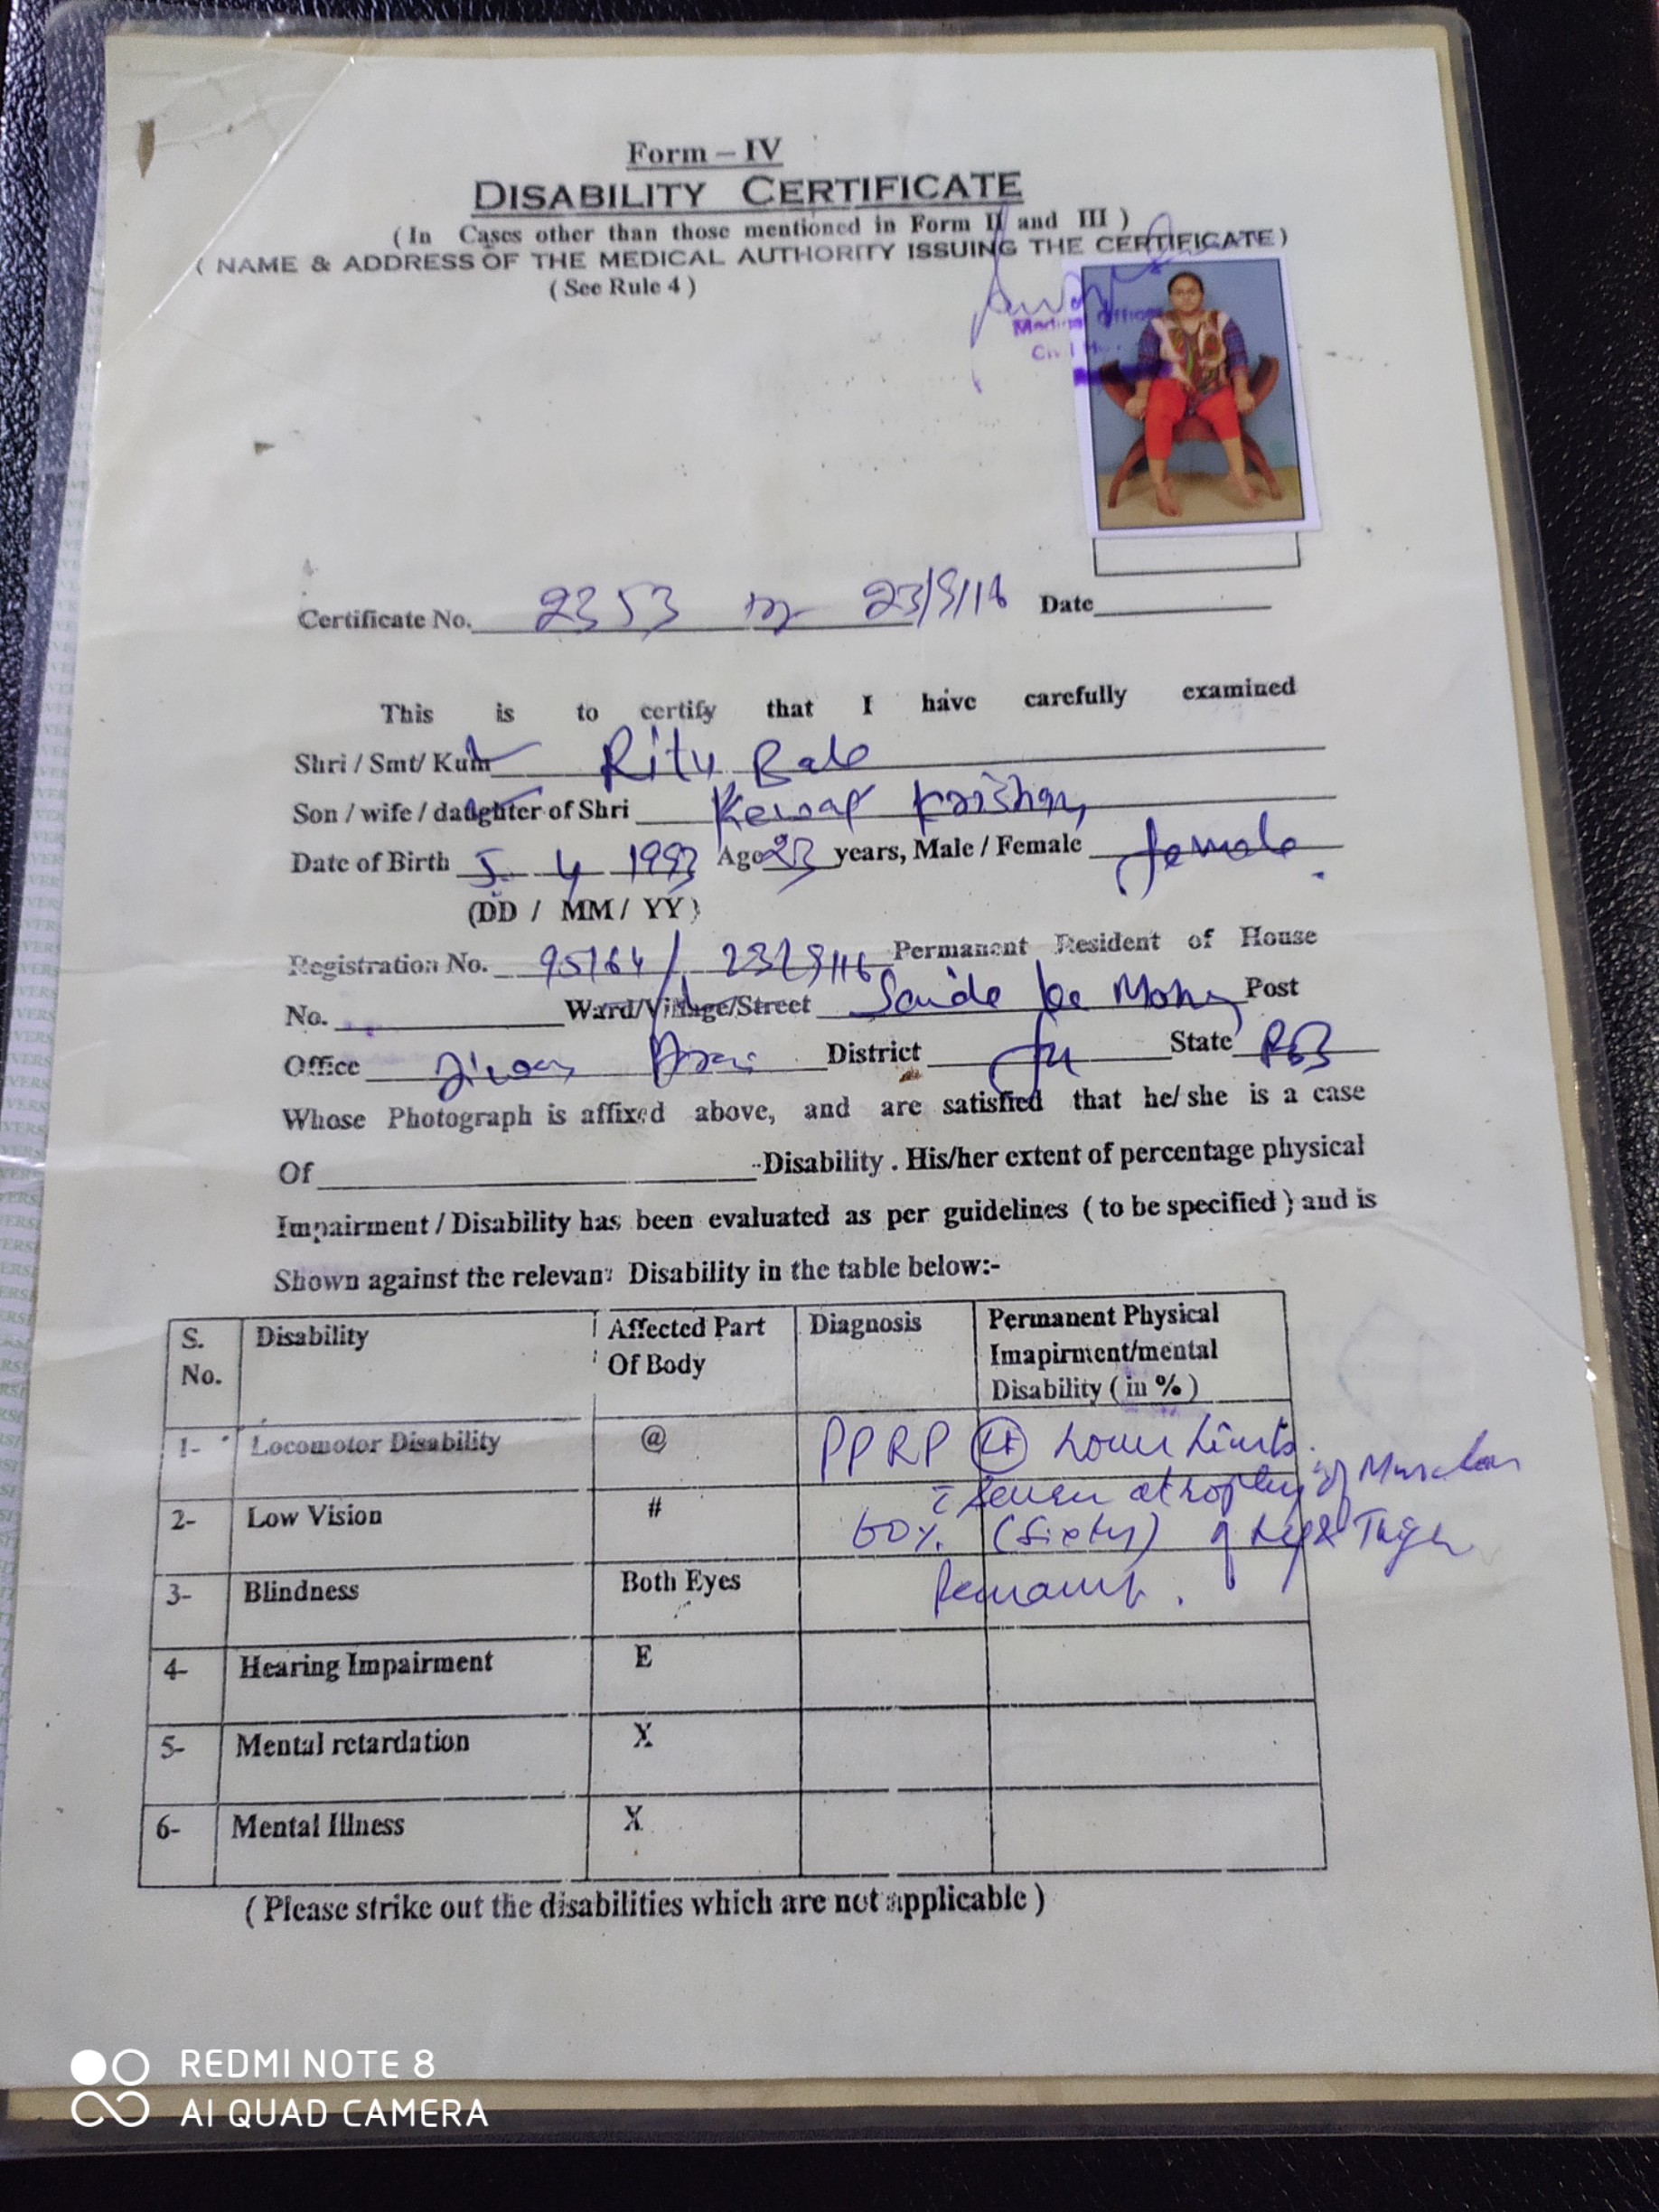 Form – IV
DISABILITY CERTIFICATE
( In Cases other than those mentioned in Form II and III )
( NAME & ADDRESS OF THE MEDICAL AUTHORITY ISSUING THE CERTIFICATE )
( See Rule 4 )
Medical Officer
Certificate No. 2353 23/9/16 Date
This is to certify that I have carefully examined
Shri / Smt/ Kum Ritu Bala
Son / wife / daughter of Shri Kewal Krishan
Date of Birth 5 4 1993 Age 23 years, Male / Female female
(DD / MM / YY )
Registration No. 95164 / 23/9/16 Permanent Resident of House
No. Ward/Village/Street Saide ke Mohn Post
Office District State PB
Whose Photograph is affixed above, and are satisfied that he/ she is a case
Of Disability . His/her extent of percentage physical
Impairment / Disability has been evaluated as per guidelines ( to be specified ) and is
Shown against the relevant Disability in the table below:-
S. No. Disability Affected Part Of Body Diagnosis Permanent Physical Imapirment/mental Disability ( in % )
1- Locomotor Disability @ PPRP Lt Lower Limb
severe atrophy of Muscles
2- Low Vision # 60% (Sixty) of Leg & Thigh
3- Blindness Both Eyes Permanent.
4- Hearing Impairment E
5- Mental retardation X
6- Mental Illness X
( Please strike out the disabilities which are not applicable )
REDMI NOTE 8
AI QUAD CAMERA